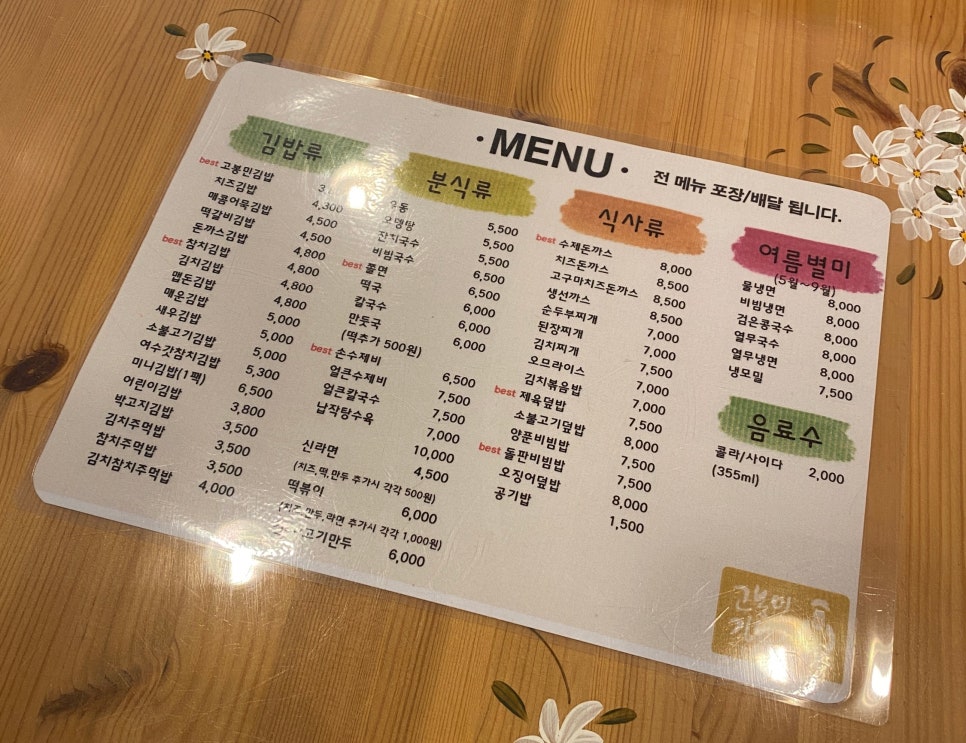 ·MENU·
전 메뉴 포장/배달 됩니다.
김밥류
best 고봉민김밥
치즈김밥 3,
매콤어묵김밥 4,300
떡갈비김밥 4,500
돈까스김밥 4,500
best 참치김밥 4,800
김치김밥 4,800
맵돈김밥 4,800
매운김밥 5,000
새우김밥 5,000
소불고기김밥 5,000
여수갓참치김밥 5,300
미니김밥(1팩) 6,500
어린이김밥 3,800
박고지김밥 3,500
김치주먹밥 3,500
참치주먹밥 3,500
김치참치주먹밥 4,000
분식류
우동 5,500
오뎅탕 5,500
잔치국수 5,500
비빔국수 6,500
best 쫄면 6,500
떡국 6,000
칼국수 6,000
만둣국 6,000
(떡추가 500원)
best 손수제비 6,500
얼큰수제비 7,500
얼큰칼국수 7,500
납작탕수육 7,000
10,000
신라면 4,500
(치즈,떡,만두 추가시 각각 500원)
떡볶이 6,000
(치즈,만두,라면 추가시 각각 1,000원)
고기만두 6,000
식사류
best 수제돈까스 8,000
치즈돈까스 8,500
고구마치즈돈까스 8,500
생선까스 8,500
순두부찌개 7,000
된장찌개 7,000
김치찌개 7,500
오므라이스 7,000
김치볶음밥 7,000
best 제육덮밥 7,500
소불고기덮밥 8,000
양푼비빔밥 7,500
best 돌판비빔밥 7,500
오징어덮밥 8,000
공기밥 1,500
여름별미
(5월~9월)
물냉면 8,000
비빔냉면 8,000
검은콩국수 8,000
열무국수 8,000
열무냉면 8,000
냉모밀 7,500
음료수
콜라/사이다 2,000
(355ml)
고봉민